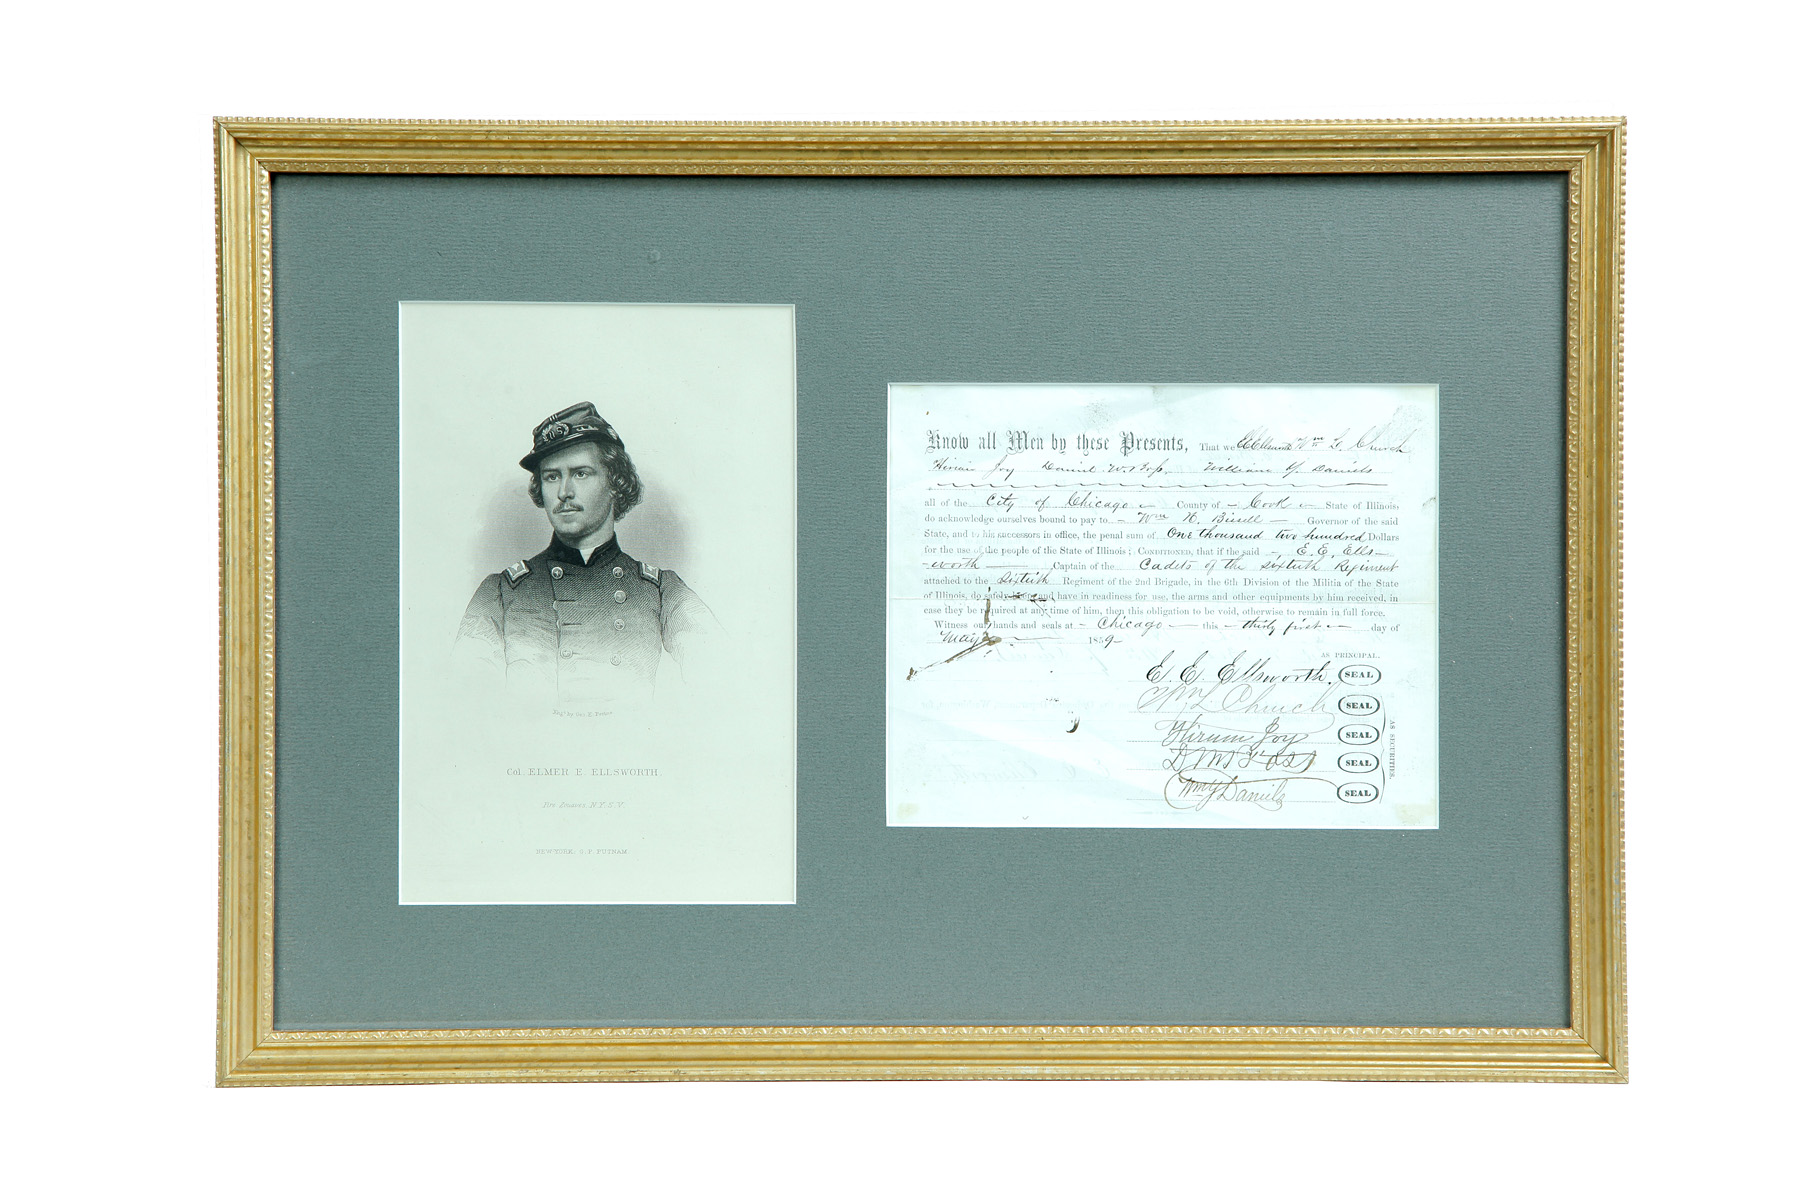 U S
Engd by Geo. E. Perine
Col. ELMER E. ELLSWORTH.
Fire Zouaves N.Y.S.V.
NEW YORK, G. P. PUTNAM
Know all Men by these Presents, That we E E Ellsworth Wm L Church
Hiram Joy Daniel W. Foss, William Y. Daniels
all of the City of Chicago County of Cook State of Illinois;
do acknowledge ourselves bound to pay to Wm H. Bissell Governor of the said
State, and to his successors in office, the penal sum of One thousand two hundred Dollars
for the use of the people of the State of Illinois; CONDITIONED, that if the said E. E. Ells-
-worth Captain of the Cadets of the sixtieth Regiment
attached to the sixtieth Regiment of the 2nd Brigade, in the 6th Division of the Militia of the State
of Illinois, do safely keep and have in readiness for use, the arms and other equipments by him received, in
case they be required at any time of him, then this obligation to be void, otherwise to remain in full force.
Witness our hands and seals at Chicago this thirty first day of
May 1859
AS PRINCIPAL.
E. E. Ellsworth. SEAL
Wm L Church SEAL
Hiram Joy SEAL
D W Foss SEAL
Wm Y Daniels SEAL
AS SECURITIES.